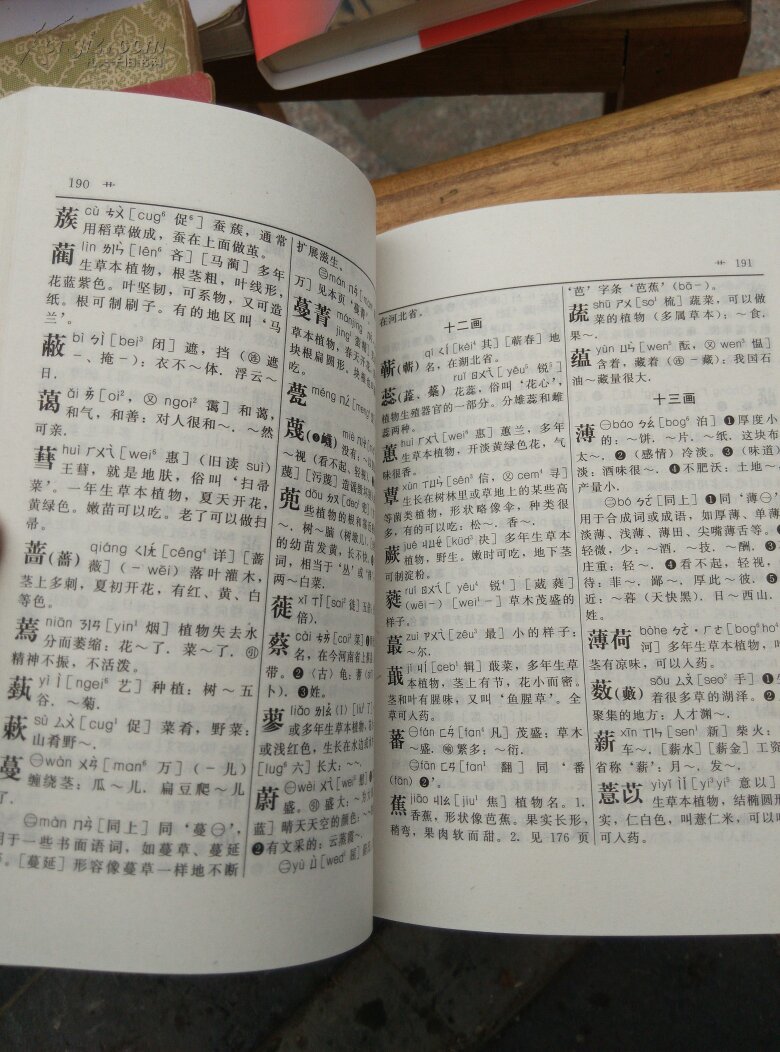 190 艹
蔟 cù ㄘㄨˋ [cug⁶ 促⁶] 蚕蔟，通常
用稻草做成，蚕在上面做茧。
蔺 lìn ㄌㄧㄣˋ [lên⁶ 吝] [马蔺] 多年
生草本植物，根茎粗，叶线形，
花蓝紫色。叶坚韧，可系物，又可造
纸。根可制刷子。有的地区叫‘马
兰’。
蔽 bì ㄅㄧˋ [bei³ 闭] 遮，挡（㊣遮
－、掩－）：衣不～体．浮云～
日．
蔼 ǎi ㄞˇ [oi², 又 ngoi² 霭] 和蔼，
和气，和善：对人很和～．～然
可亲．
蔧 huì ㄏㄨㄟˋ [wei⁶ 惠]（旧读 suì）
王蔧，就是地肤，俗叫‘扫帚
菜’。一年生草本植物，夏天开花，
黄绿色。嫩苗可以吃。老了可以做扫
帚。
蔷(薔) qiáng ㄑㄧㄤˊ [cêng⁴ 详] [蔷
薇]（－wēi）落叶灌木，
茎上多刺，夏初开花，有红、黄、白
等色。
蔫 niān ㄋㄧㄢ [yin¹ 烟] 植物失去水
分而萎缩：花～了．菜～了．㊟
精神不振，不活泼。
蓺 yì ㄧˋ [ngei⁶ 艺] 种植：树～五
谷．～菊．
蔌 sù ㄙㄨˋ [cug¹ 促] 菜肴，野菜：
山肴野～．
蔓 ㊀wàn ㄨㄢˋ [man⁶ 万]（－儿）
缠绕茎：瓜～儿．扁豆爬～儿
了．
㊁màn ㄇㄢˋ [同上] 同‘蔓㊀’，
用于一些书面语词，如蔓草、蔓延
等。[蔓延] 形容像蔓草一样地不断
扩展滋生、
㊂mán ㄇㄢˊ
万] 见本页‘蔓菁’
蔓菁 mánjing
草本植物，春天开花，
块根扁圆形，块根
吃。
甍 méng ㄇㄥˊ [meng
蔑(❸衊) miè
～视（看不起，轻视）
蔑] [污蔑] 造谣
蔸 dōu ㄉㄡ [deo¹
些植物的根和
～．树～脑（树墩儿）
的幼苗发黄，长不快．
词，相当于‘丛’或‘棵’
两～白菜．
蓰 xǐ ㄒㄧˇ [sai² 徙] 五
倍）．
蔡 cài ㄘㄞˋ [coi³ 菜] ❶
名，在今河南省上蔡
带。❷〈古〉龟：蓍
卜）．❸姓。
蓼 liǎo ㄌㄧㄠˇ (1) [liu⁵ 了
或多年生草本植物，
或浅红色，生长在水边或
[lug⁶ 六] 长大：～～．
蔚 ㊀wèi ㄨㄟˋ [wei³ 慰]
盛。㊟盛大：～
蓝] 晴天天空的颜色：
❷有文采的：云蒸霞～．
㊁yù ㄩˋ [wed⁶ 屈]
艹 191
在河北省。
十二画
蕲(蘄) qí ㄑㄧˊ [kéi⁴ 其] [蕲春] 地
名，在湖北省。
蕊(蕋、蘂) ruǐ ㄖㄨㄟˇ [yêu⁵ 锐⁵]
花蕊，俗叫‘花心’，
植物生殖器官的一部分。分雄蕊和雌
蕊两种。
蕙 huì ㄏㄨㄟˋ [wei⁶ 惠] 蕙兰，多年
生草本植物，开淡黄绿色花，气
味很香。
蕈 xùn ㄒㄩㄣˋ [sên³ 信，又 cem⁴ 寻]
生长在树林里或草地上的某些高
等菌类植物，形状略像伞，种类很
多，有的可以吃：松～．香～．
蕨 jué ㄐㄩㄝˊ [küd³ 决] 多年生草本
植物，野生。嫩时可吃，地下茎
可制淀粉。
蕤 ruí ㄖㄨㄟˊ [yêu⁴ 锐⁴] [葳蕤]
（wēi－）[wei¹－] 草木茂盛的
样子。
蕞 zuì ㄗㄨㄟˋ [zêu³ 最] 小的样子：
～尔．
蕺 jí ㄐㄧˊ [ceb¹ 辑] 蕺菜，多年生草
本植物，茎上有节，花小而密。
茎和叶有腥味，又叫‘鱼腥草’。全
草可入药。
蕃 ㊀fán ㄈㄢˊ [fan⁴ 凡] 茂盛：草木
～盛．㊟繁多：～衍．
㊁fān ㄈㄢ [fan¹ 翻] 同‘番
(fān) ❷’。
蕉 jiāo ㄐㄧㄠ [jiu¹ 焦] 植物名。1.
香蕉，形状像芭蕉。果实长形，
稍弯，果肉软而甜。2. 见 176 页
‘芭’字条‘芭蕉’(bā－)。
蔬 shū ㄕㄨ [so¹ 梳] 蔬菜，可以做
菜的植物（多属草本）：～食．
果～．
蕴 yùn ㄩㄣˋ [wen⁵ 酝，又 wen³ 愠]
含着，藏着（㊣－藏）：我国石
油～藏量很大．
十三画
薄 ㊀báo ㄅㄠˊ [bog⁶ 泊] ❶厚度小
的：～饼．～片．～纸．这块布
太～．❷（感情）冷淡。❸（味道）
淡：酒味很～．❹不肥沃：土地～
产量小．
㊁bó ㄅㄛˊ [同上] ❶同‘薄㊀’
用于合成词或成语，如厚薄、单薄
淡薄、浅薄、薄田、尖嘴薄舌等。
轻微，少：～酒．～技．～酬．❸
庄重：轻～．❹看不起，轻视，
待：菲～．鄙～．厚此～彼．❺
近：～暮（天快黑）．日～西山．
姓。
薄荷 bòhe ㄅㄛˋ·ㄏㄜ [bog⁶ho⁴
河] 多年生草本植物，叶
茎有凉味，可以入药。
薮(藪) sǒu ㄙㄡˇ [seo² 手] ❶生
着很多草的湖泽。❷
聚集的地方：人才渊～．
薪 xīn ㄒㄧㄣ [sen¹ 新] 柴火：
车～．[薪水] [薪金] 工资
省称‘薪’：月～．发～．
薏苡 yìyǐ ㄧˋㄧˇ [yi³yi⁵ 意以]
生草本植物，结椭圆形
实，仁白色，叫薏仁米，可以吃
可入药。